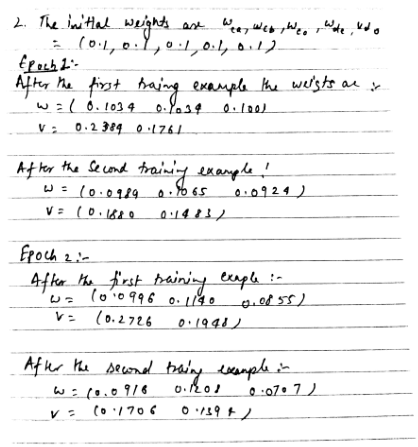 2. The initial weights are Wca, Wcb, Wco, Wdc, Wdo
= (0.1, 0.1, 0.1, 0.1, 0.1)
Epoch 1:-
After the first traing example the weigts are :-
w = ( 0.1034 0.1039 0.1001
V = 0.2389 0.1761
After the Second training example!
w = (0.0989 0.1065 0.0924)
V = (0.1880 0.1483)
Epoch 2:-
After the first training exaple :-
w = (0.0996 0.1140 0.0855)
V = (0.2726 0.1948)
After the second traing example :-
w = (0.0916 0.1201 0.0707)
V = (0.1706 0.1394)